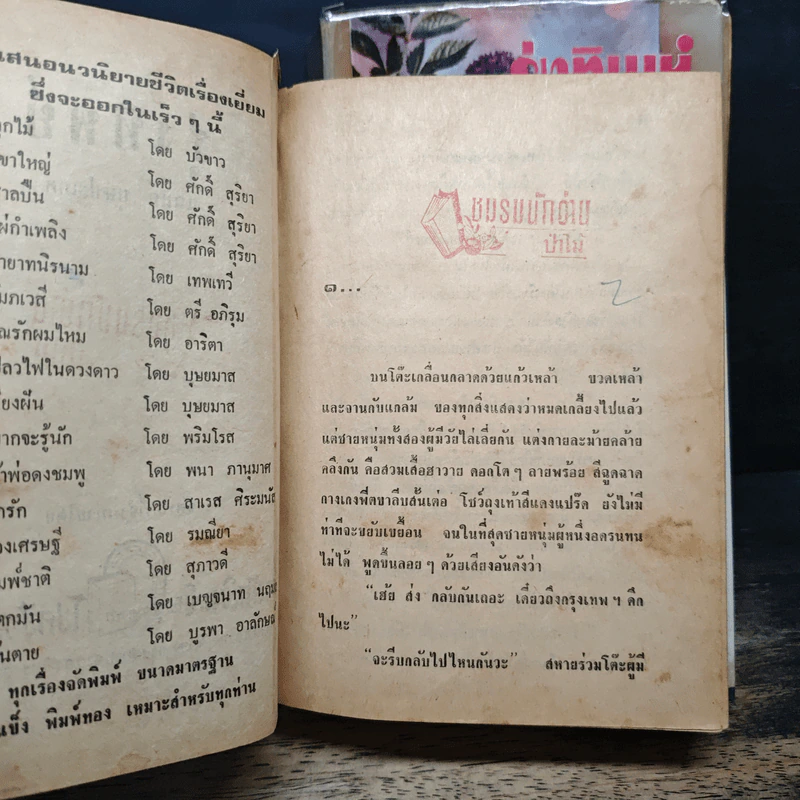 เสนอนวนิยายชีวิตเรื่องเยี่ยม
ซึ่งจะออกในเร็ว ๆ นี้
โดย บัวขาว
ขาใหญ่ โดย ศักดิ์ สุริยา
โดย ศักดิ์ สุริยา
โดย ศักดิ์ สุริยา
โดย เทพเทวี
โดย ตรี อภิรุม
โดย อาริตา
โดย บุษยมาส
โดย บุษยมาส
ากจะรู้นัก โดย พริมโรส
โดย พนา ภานุมาศ
โดย สาเรส ศิระมนัส
โดย รมณียา
โดย สุภาวดี
โดย เบญจนาท
โดย บูรพา อาลักษณ์
ทุกเรื่องจัดพิมพ์ ขนาดมาตรฐาน
แข็ง พิมพ์ทอง เหมาะสำหรับทุกท่าน
ชมรมนักอ่าน
ป่าไม้
๑...
2
บนโต๊ะเกลื่อนกลาดด้วยแก้วเหล้า ขวดเหล้า
และจานกับแกล้ม ของทุกสิ่งแสดงว่าหมดเกลี้ยงไปแล้ว
แต่ชายหนุ่มทั้งสองผู้มีวัยไล่เลี่ยกัน แต่งกายละม้ายคล้าย
คลึงกัน คือสวมเสื้อฮาวาย ดอกโต ๆ ลายพร้อย สีฉูดฉาด
กางเกงฟิตขาลีบสั้นเต่อ โชว์ถุงเท้าสีแดงแปร๊ด ยังไม่มี
ท่าที่จะขยับเขยื้อน จนในที่สุดชายหนุ่มผู้หนึ่งอดรนทน
ไม่ได้ พูดขึ้นลอย ๆ ด้วยเสียงอันดังว่า
“เฮ้ย ส่ง กลับกันเถอะ เดี๋ยวถึงกรุงเทพ ฯ ดึก
ไปนะ”
“จะรีบกลับไปไหนกันวะ” สหายร่วมโต๊ะผู้มี